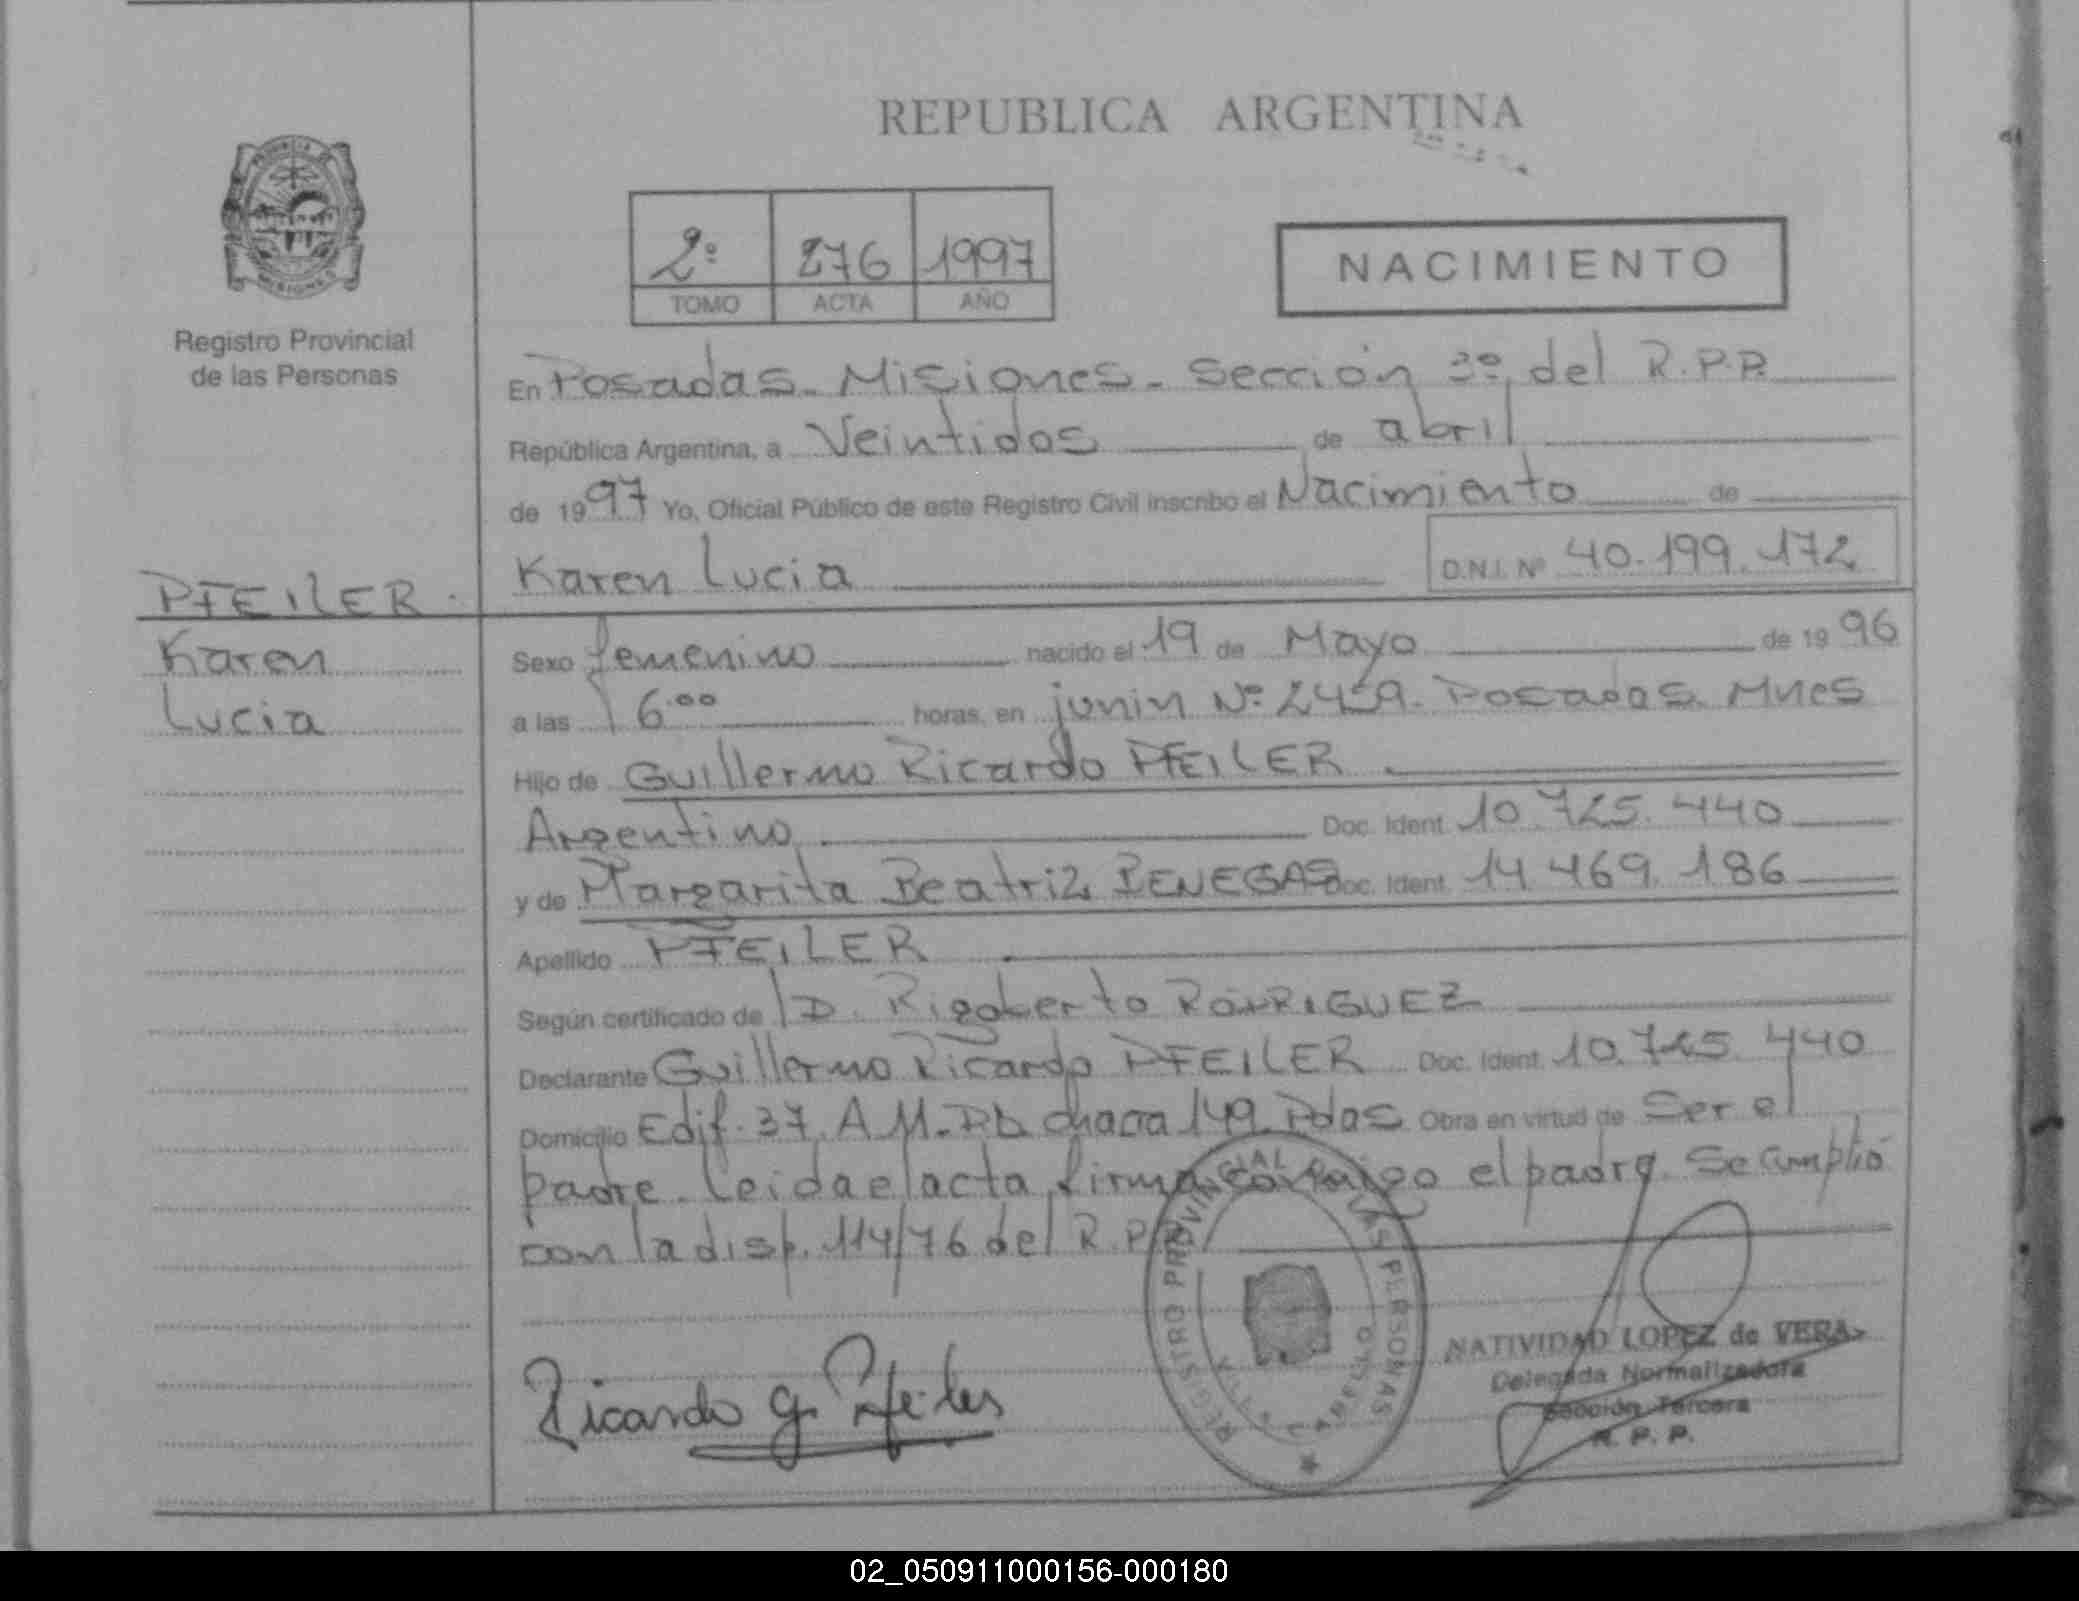 REPUBLICA ARGENTINA
2º 276 1997
TOMO ACTA AÑO
NACIMIENTO
Registro Provincial
de las Personas
En Posadas - Misiones - Sección 3º, del R.P.P.
República Argentina, a Veintidos de abril
de 1997 Yo, Oficial Público de este Registro Civil inscribo el Nacimiento de
Karen Lucia D.N.I. Nº 40.199.172
PFEILER.
Karen
Lucia
Sexo femenino nacido el 19 de Mayo de 1996
a las 16.00 horas, en junin Nº 2459. Posadas. Mnes
Hijo de Guillermo Ricardo PFEILER
Argentino Doc. Ident. 10.725.440
y de Margarita Beatriz BENEGAS Doc. Ident. 14.469.186
Apellido PFEILER
Según certificado de D. Rigoberto RODRIGUEZ
Declarante Guillermo Ricardo PFEILER Doc. Ident. 10.725.440
Domicilio Edif. 37, chacra 149 Pdas Obra en virtud de Ser el
padre. Leida el acta, firma conmigo el padre. Se cumplió
con la disp. 114/76 del R.P.P.
REGISTRO PROVINCIAL DE LAS PERSONAS
Ricardo G. Pfeiler
NATIVIDAD LOPEZ de VERA
Delegada Normalizadora
Sección Tercera
R. P. P.
02_050911000156-000180